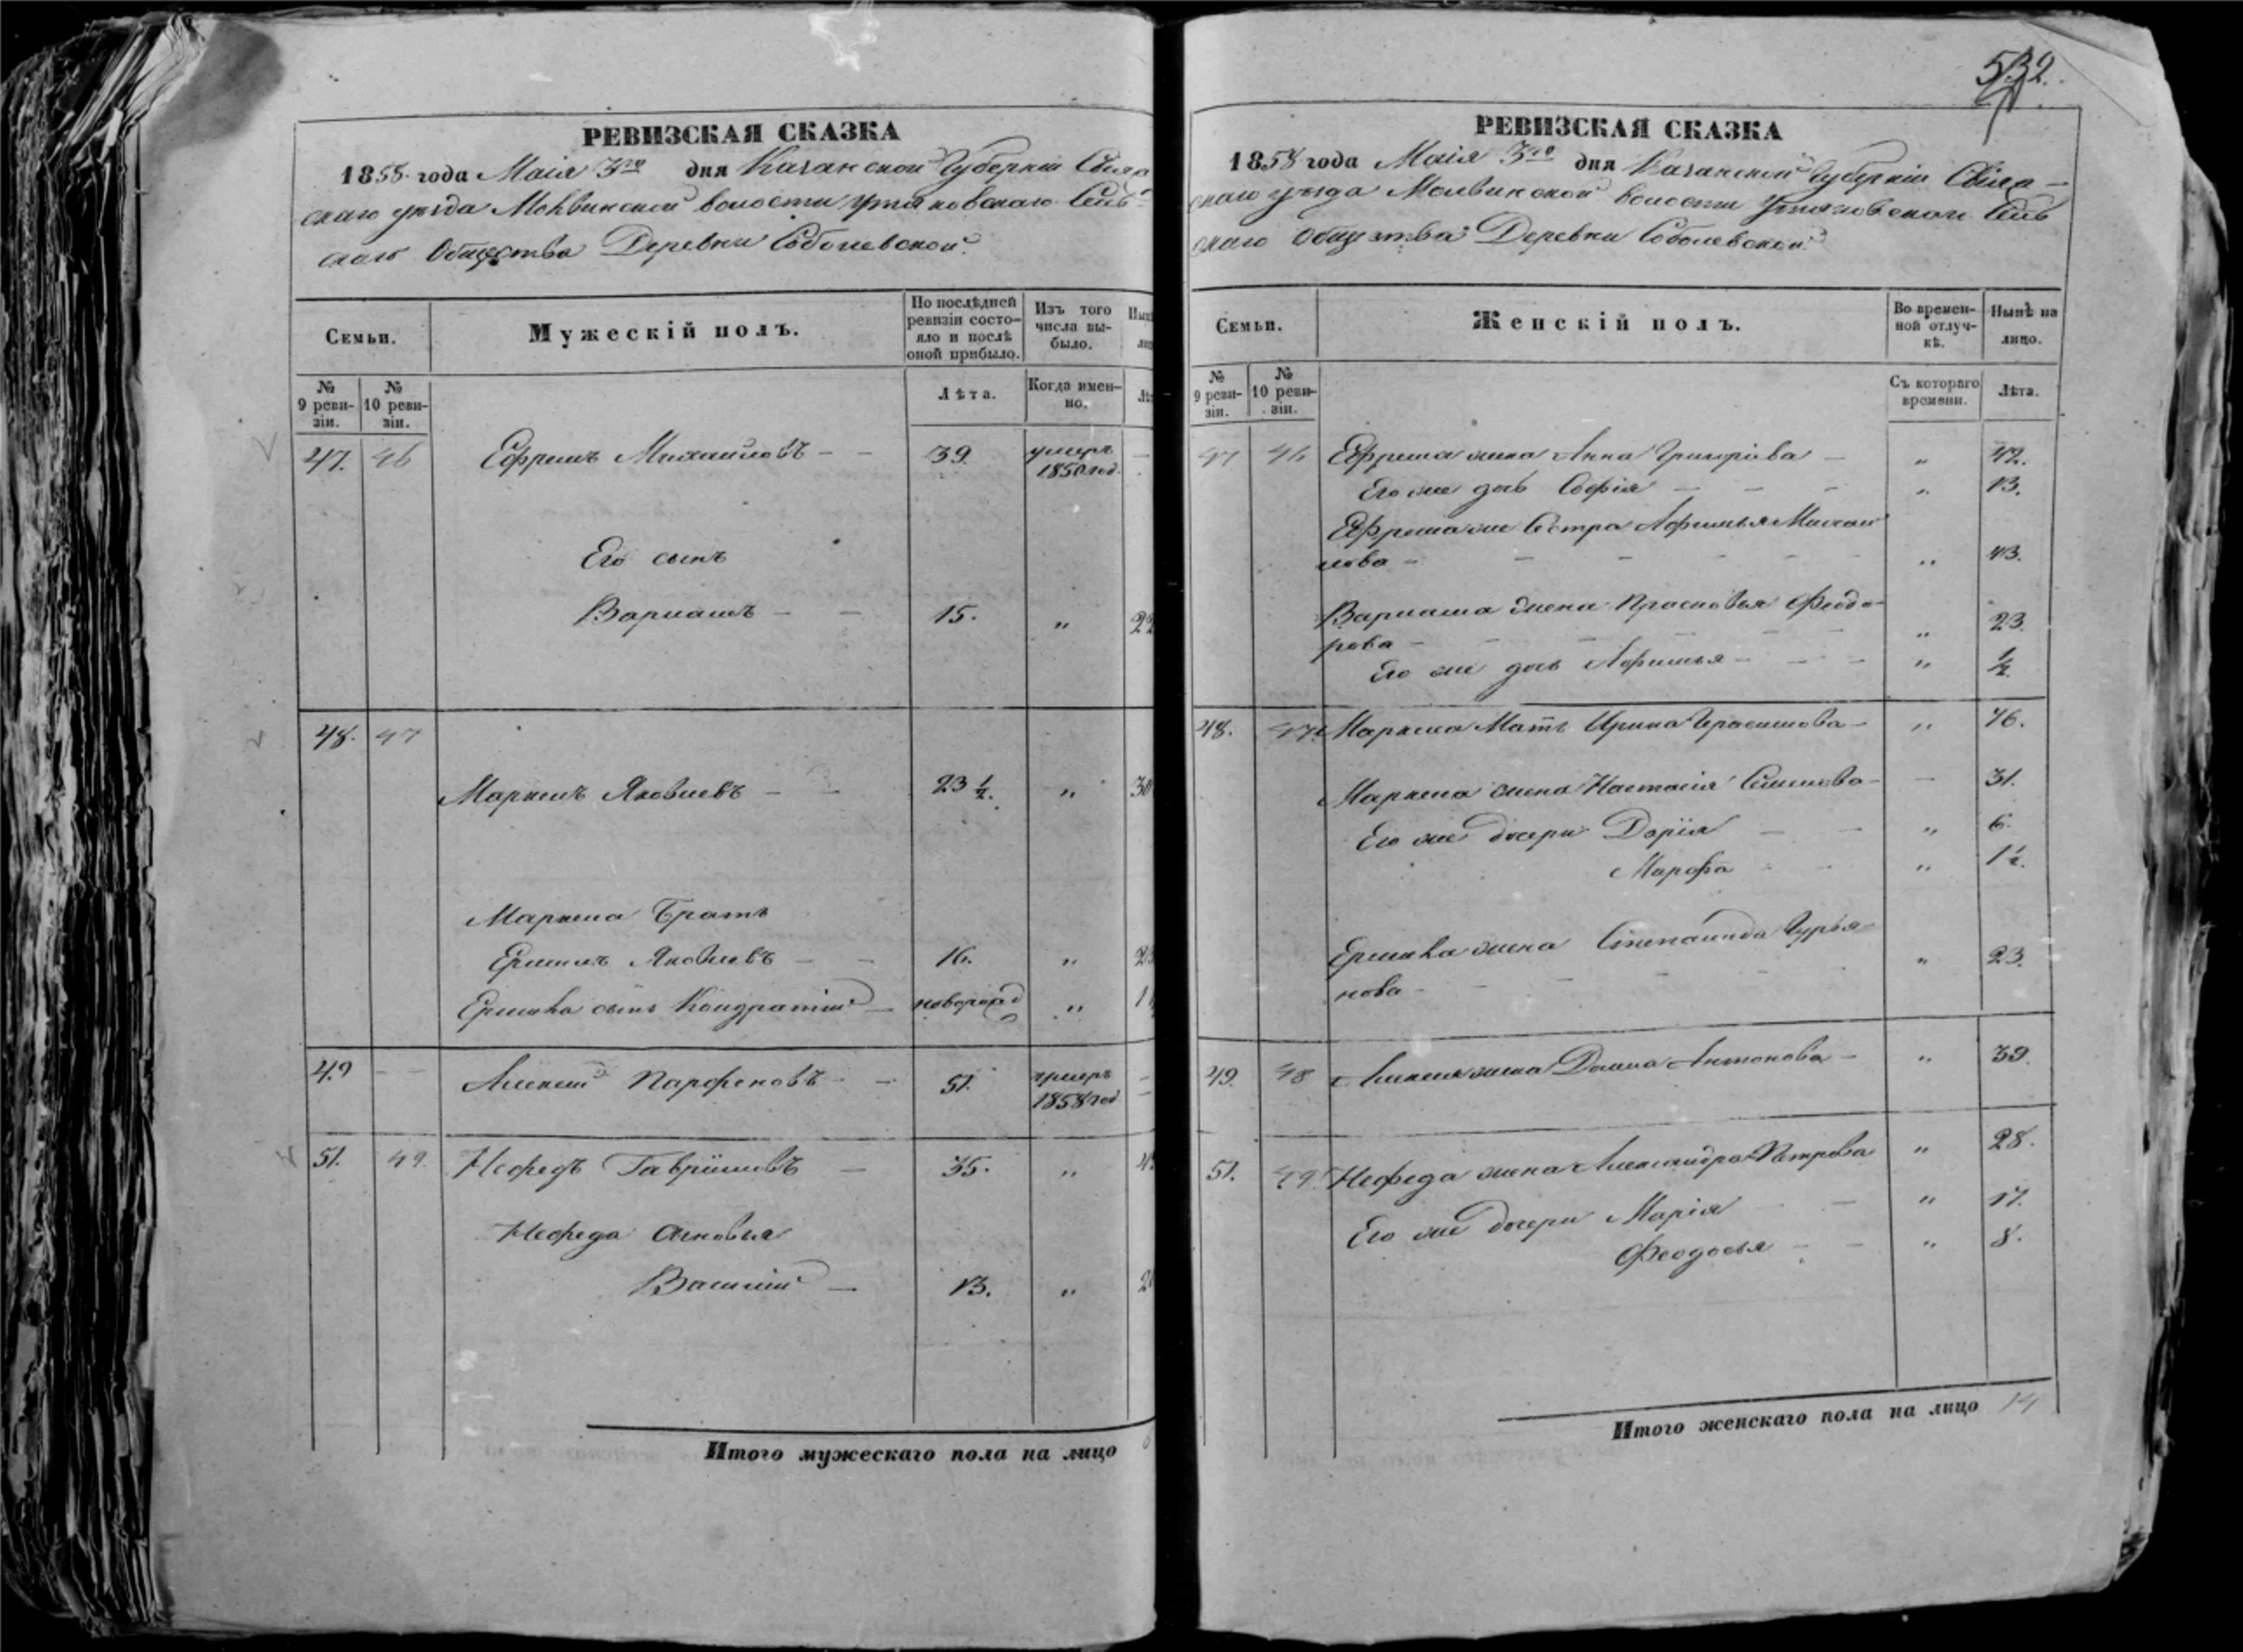 РЕВИЗСКАЯ СКАЗКА
1858 года Маія 3го дня Казанской Губерніи Свіяж
скаго уѣзда волости Сель
скаго Общества Деревни Соболевской
Семьи.
Мужескій полъ.
По послѣдней ревизіи состояло и послѣ оной прибыло.
Изъ того числа выбыло.
№ 9 ревизіи.
№ 10 ревизіи.
Лѣта.
Когда именно.
47. 46 Ефремъ Михаиловъ – – 39. умеръ 1850 год. –
Его сынъ
Варламъ – – 15. „ 22
48. 47
Маркелъ Яковлевъ – – 23 ½. „ 30
Маркела Братъ
Ермилъ Яковлевъ – – 16. „
Сынъ Кондратій – новорожд „
49 – – Алексѣй Парфеновъ – – 51. умеръ 1858 год –
51. 49. Нефедъ Гавриловъ – 35. „
Нефеда сыновья
Василій – 13. „
Итого мужескаго пола на лицо
532.
РЕВИЗСКАЯ СКАЗКА
1858 года Маія 3го дня Казанской Губерніи Свіяж–
скаго уѣзда волости Сель
скаго Общества Деревни Соболевской
Семьи.
Женскій полъ.
Во временной отлучкѣ.
Нынѣ на лицо.
№ 9 ревизіи.
№ 10 ревизіи.
Съ котораго времени.
Лѣта.
47 46 Ефрема жена Анна Григорьева – „ 42.
Его же дочь Софія – – – „ 13.
Ефрема же Сестра Афимья Михаи
лова – – – – – – „ 43.
Варлама жена Прасковья Феодо–
рова – – – – „ 23.
Его же дочь Афимья – – – „ ½
48. 47 Маркела Мать Ирина Герасимова – „ 76.
Маркела жена Настасія Семенова – – 31.
Его же дочери Дарія – – „ 6.
Марфа – – „ 1½.
жена Степанида Гурья–
нова – – – „ 23.
49. 48 Алексѣя жена Домна Антонова – „ 39.
51. 49. Нефеда жена Александра Петрова „ 28.
Его же дочери Марія – „ 17.
Феодосья – – „ 8.
Итого женскаго пола на лицо 14